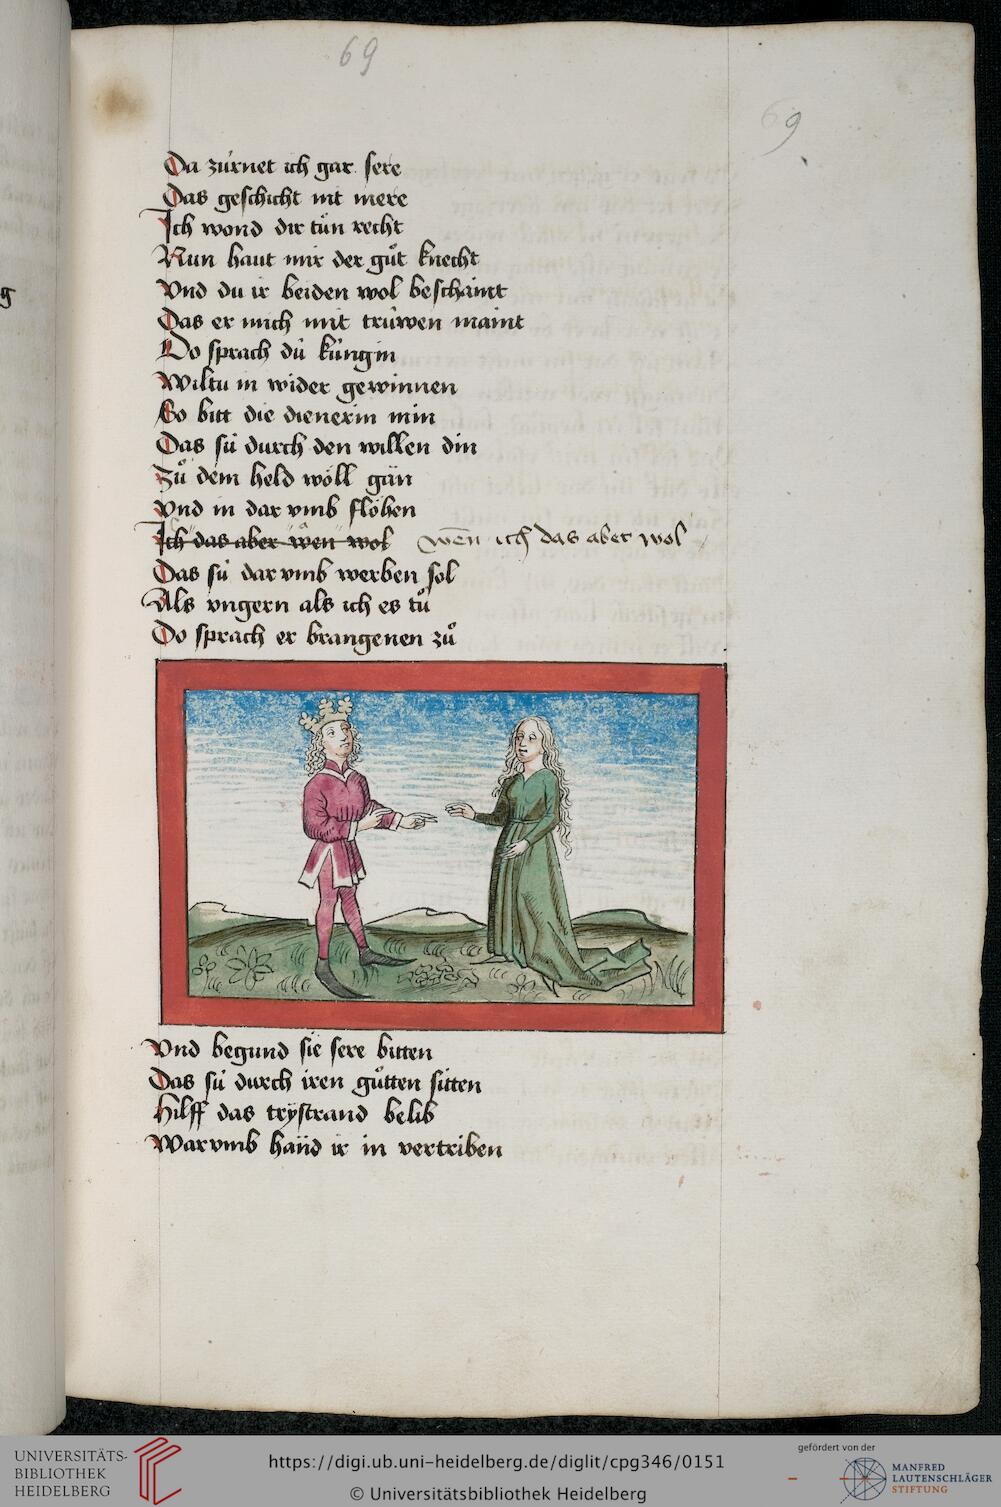 69
69
Da zúrnet ich gar sere
Das geschicht nit mere
Ich wond dir tuͦn recht
Nun haut mir der guͦt knecht
Vnd du ir beiden wol beschaint
Das er mich mit trúwen maint
Do sprach dú kúngin
Wiltu in wider gewinnen
So bitt die dienerin min
Das sú durch den willen din
Zuͦ dem held wöll gän
Vnd in dar vmb flöhen
Ich das aber wen wol wen̄ ich das aber wol
Das sú dar vmb werben sol
Als vngern als ich es tuͦ
Do sprach er brangenen zuͦ
Vnd begund sie sere bitten
Das sú durch iren guͦtten sitten
Hilff das trÿstrand belib
War vmb händ ir in vertriben
g
UNIVERSITÄTS-
BIBLIOTHEK
HEIDELBERG
https://digi.ub.uni-heidelberg.de/diglit/cpg346/0151
© Universitätsbibliothek Heidelberg
gefördert von der
MANFRED
LAUTENSCHLÄGER
STIFTUNG